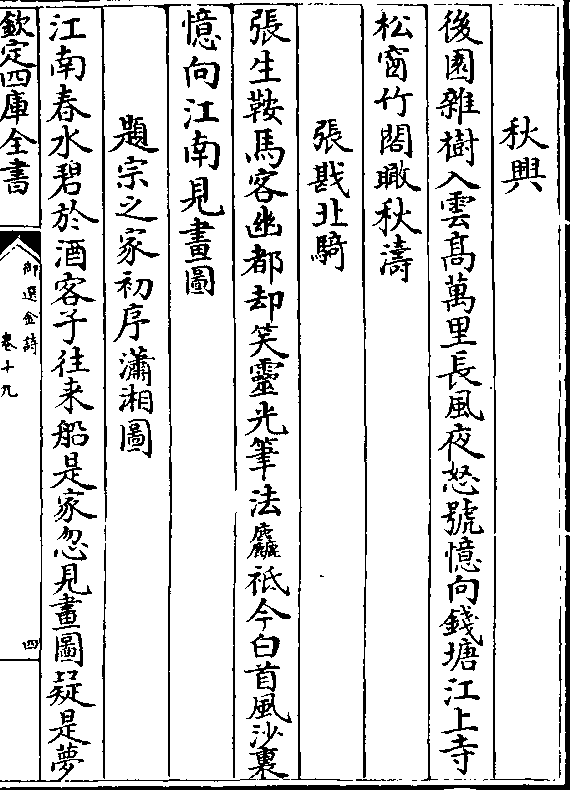 秋興
後園雜樹入雲髙萬里長風夜怒號憶向錢塘江上寺
松窗竹閣瞰秋濤
張戡北騎
張生鞍馬客幽都却笑靈光筆法麤祗今白首風沙裏
憶向江南見畫圖
題宗之家初序瀟湘圖
江南春水碧於酒客子往来船是家忽見畫圖疑是夢
欽定四庫全書
御選金詩
卷十九
四